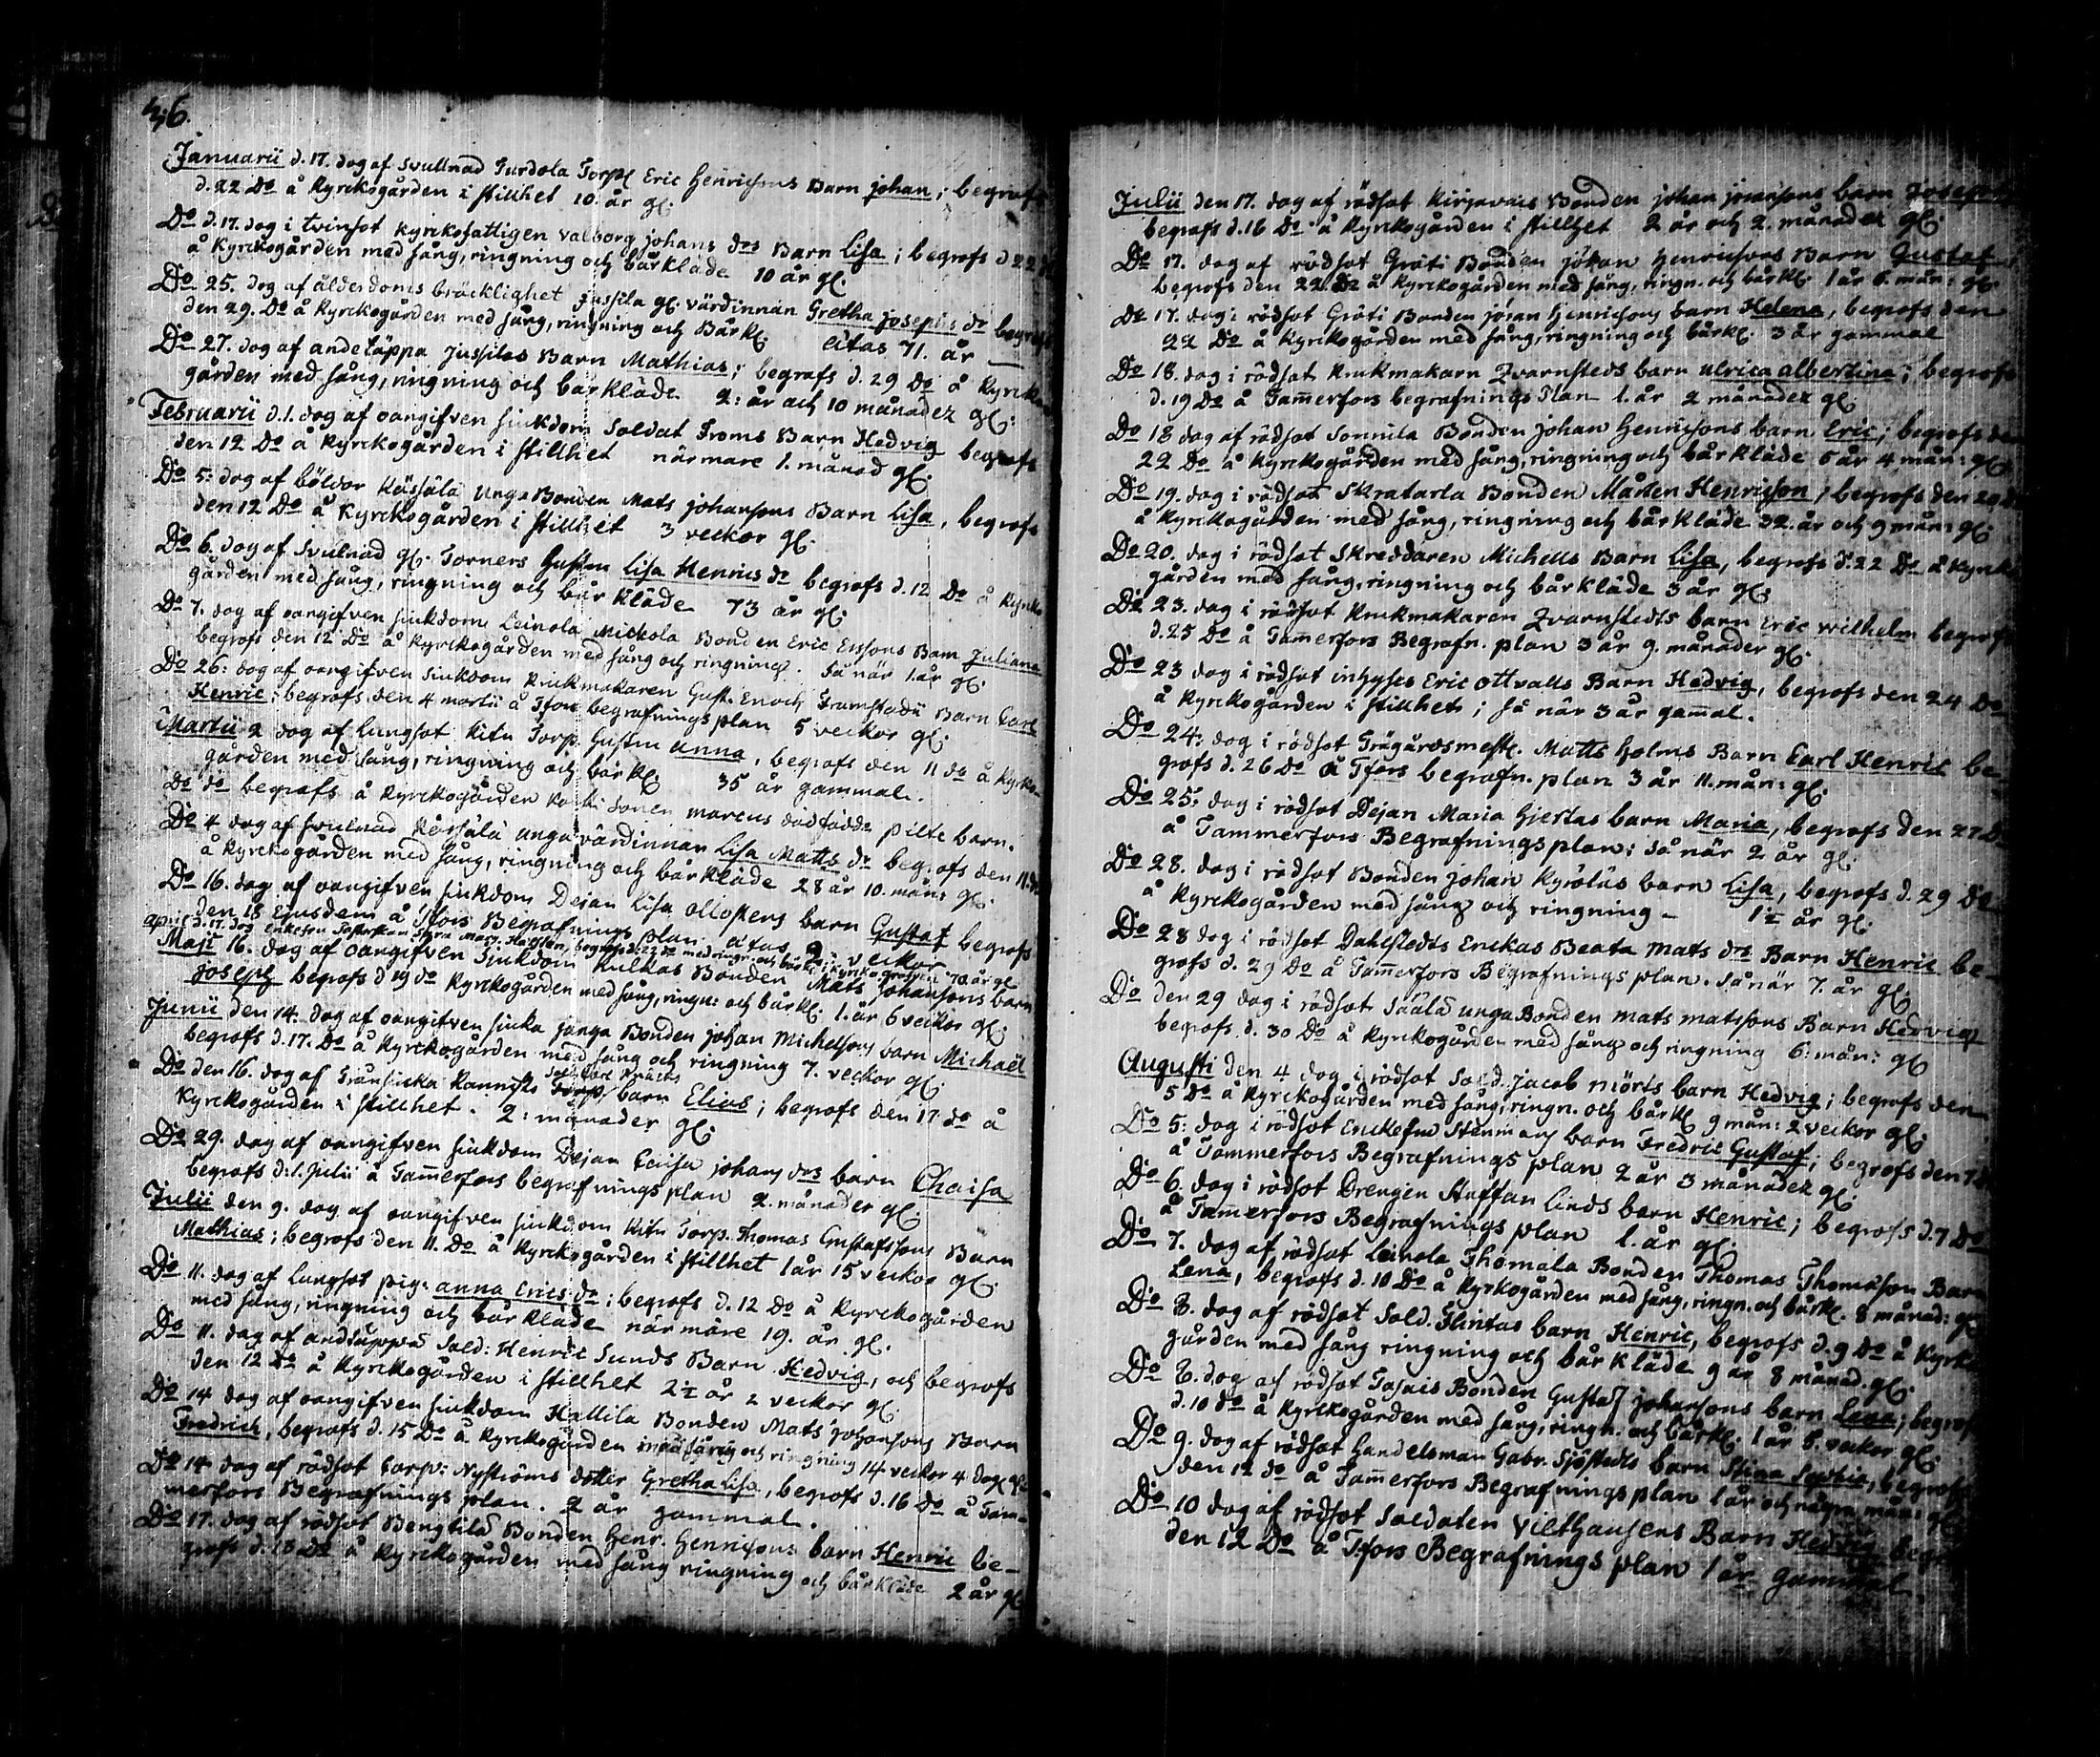 46.
Januarii d. 17. dog af svullnad Turdola Torp: Eric Henricsons Barn johan; begrofs
d. 22 Do å Kyrckogården i stillhet 10. år gl:
Do d. 17. dog i tvinsot kyrckofattigen valborg johans drs Barn Lisa; begrofs d 22
å Kyrckogården med sång, ringning och bårkläde 10 år gl:
Do 25. dog af ålderdoms bräcklighet Jussila gl: värdinnan Gretha josephs dr begrofs
den 29. Do å Kyrckogården med sång, ringning och Bårkl: 71. år
Do 27. dog af andetäppa Jussilas Barn Mathias; begrofs d. 29 Do å Kyrcko
gården med sång, ringning och bårkläde 2: år och 10 månader gl:
Februarii d. 1. dog af oangifven siukdom Soldat Froms Barn Hedvig begrofs
den 12 Do å Kyrckogården i stillhet närmare 1. månad gl:
Do 5: dog af bölder Kässälä unga Bonden Mats johansons Barn Lisa, begrofs
den 12 Do å Kyrckogården i stillhet 3 veckor gl:
Do 6. dog af svulnad gl: Torpers hustru Lisa Henrics dr begrofs d. 12 Do å Kyrcko
gården med sång, ringning och bår kläde 73 år gl:
Do 7. dog af oangifven siukdom Leinola Mickola Bonden Eric Ericssons Barn Juliana
begrofs den 12 Do å Kyrckogården med sång och ringning. Så när 1 år gl:
Do 26: dog af oangifven siukdom Krukmakaren Gust. Enoch Barn Carl
Henric; begrofs den 4 martii å Tfors begrafnings plan 5 veckor gl:
Martii 2 dog af lungsot Kitu Torp. hustru Anna, begrofs den 11 do å Kyrko-
gården med sång, ringning och bårkl: 35 år gammal.
Do do begrofs å Kyrckogården sonen marcus dödfödde pilte barn.
Do 4 dog af svulnad Kässälä unga värdinnan Lisa Matts dr begrofs den 11. do
å Kyrckogården med sång, ringning och bårkläde 28 år 10. mån: gl:
Do 16. dag af oangifven siukdom Dejan Lisa ollostens barn Gustaf begrofs
den 18 Ejusdem å Tfors Begrafnings plan. ætas 2: veckor
april d. 17. dog begrofs d. 22 do med ringn: och bårkl: i kyrkogården 70 år gl
Maji 16. dog af oangifven siukdom Kulkas Bonden Mats johansons barn
joseph begrofs d 19 do Kyrckogården med sång, ringn: och bårkl: 1. år 6 veckor gl:
Junii den 14. dog af oangifven siuka janga Bonden johan Michelsons barn Michaël
begrofs d. 17. Do å Kyrckogården med sång och ringning 7. veckor gl:
Do den 16. dog af Gränsiuka Rannisto barn Elias; begrofs den 17 do å
Kyrckogården i stillhet. 2: månader gl:
Do 29. dag af oangifven siukdom Dejan Caisa johans drs barn Chaisa
begrofs d: 1. Julii å Tammerfors begrafningsplan 2. månader gl:
Julii den 9. dag af oangifven siukdom Kitu Torp. Thomas Gustafssons Barn
Mathias; begrofs den 11. Do å Kyrckogården i stillhet 1 år 15 veckor gl:
Do 11. dag af lungsot pig: anna Erics dr; begrofs d. 12 Do å Kyrckogården
med sång, ringning och bårkläde närmare 19. år gl.
Do 11. dag af andtäppa Sold: Henric Sunds Barn Hedvig, och begrofs
den 12 Do å Kyrckogården i stillhet 2½ år 2 veckor gl:
Do 14 dag af oangifven siukdom Hallila Bonden Mats johansons Barn
Fredrich, begrofs d. 15 Do å Kyrckogården och ringning 14 veckor 4 dag: gl
Do 14 dag af rödsot Corp: Nyströms dotter Gretha Lisa, begrofs d. 16 Do å Tam-
merfors Begrafnings plan. 2 år gammal.
Do 17. dag af rödsot Bengtilä Bonden Henr. Henricsons barn Henric be-
grofs d. 18 Do å Kyrckogården med sång ringning och bårkläde 2 år gl
Julii den 17. dag af rödsot Kirjavais Bonden johan joransons barn
begrofs d. 18 Do å Kyrckogården i stillhet 2 år och 2. månader gl:
Do 17. dag af rödsot Gröti Bonden jöran Henricsons Barn Gustaf
begrofs den 22. Do å Kyrckogården med sång, ringn. och bårkl: 1 år 6. mån: gl:
Do 17. dag i rödsot Gröti Bonden jöran Henricsons barn Helena, begrofs den
22 Do å Kyrckogården med sång, ringning och bårkl: 3 år gammal
Do 18. dag i rödsot Krukmakarn Qvarnsteds barn ulrica albertina; begrofs
d. 19 Do å Tammerfors begrafnings Plan 1. år 2 månader gl:
Do 18 dag af rödsot Sonnila Bonden johan Henricsons barn Eric; begrofs den
22 Do å Kyrckogården med sång, ringning och bårkläde 5 år 4 mån: gl:
Do 19. dag i rödsot Skratarla Bonden Mårten Henricson; begrofs den 20 d
å Kyrckogården med sång, ringning och bårkläde 32. år och 9 mån: gl:
Do 20. dag i rödsot Skreddaren Michells Barn Lisa, begrofs d. 22 Do å Kyrcko
gården med sång, ringning och bårkläde 3 år gl:
Do 23. dag i rödsot Krukmakaren Qvarnstedts barn Eric Wilhelm begrofs
d. 25 Do å Tammerfors Begrafn. plan 3 år 9. månader gl:
Do 23 dag i rödsot inhyses Eric ottvalls Barn Hedvig, begrofs den 24 Do
å Kyrckogården i stillhet; så när 3 år gammal.
Do 24: dag i rödsot Trägårdsmest: Matts Holms Barn Carl Henric be-
grofs d. 26 do å Tfors begrafn. plan 3 år 11. mån: gl:
Do 25: dag i rödsot Dejan Maria Hjertas barn Maria, begrofs den 27 D
å Tammerfors Begrafnings plan: så när 2 år gl:
Do 28. dag i rödsot Bonden johan Kyröläs barn Lisa, begrofs d. 29 do
å Kyrckogården med sång och ringning - 1½ år gl:
Do 28 dag i rödsot Dahlstedts Enckas Beata Mats drs Barn Henric be-
grofs d. 29 Do å Tammerfors Begrafnings plan. så när 7. år gl:
Do den 29 dag i rödsot Säälä unga Bonden mats matssons Barn Hedvig
begrofs d. 30 Do å Kyrckogården med sång och ringning 6: mån: gl
Augusti den 4 dag i rödsot Sold. Jacob Mörts barn Hedvig; begrofs den
5 Do å Kyrckogården med sång, ringn. och bårkl 9 mån: 2 veckor gl:
Do 5: dag i rödsot Enckefru Stenmans barn Fredric Gustaf; begrofs den 7 D
å Tammerfors Begrafnings plan 2 år 3 månader gl:
Do 6. dag i rödsot Drengen Staffan Linds barn Henric; begrofs d. 7 Do
å Tammerfors Begrafnings plan 1. år gl:
Do 7. dag af rödsot Leinola Thomala Bonden Thomas Thomasson Barn
Lena, begrofs d. 10 Do å Kyrkogården med sång, ringn. och bårkl. 8 månad: gl
Do 8. dag af rödsot Sold. Flintas barn Henric, begrofs d. 9 Do å Kyrko
gården med sång ringning och bårkläde 9 år 8 månad. gl:
Do 8. dag af rödsot Bonden Gustaf johansons barn Lena; begrofs
d. 10 do å Kyrckogården med sång, ringn. och bårkl: 1 år 8. veckor gl:
Do 9. dag af rödsot Handelsman Gabr. Sjöstedts barn Stina Sophia, begrofs
den 12 do å Tammerfors Begrafnings plan 1 år och några mån: gl
Do 10 dag af rödsot Soldaten Vilthausens Barn Hedvig begr
den 12 Do å Tfors Begrafnings plan 1 år gammal.